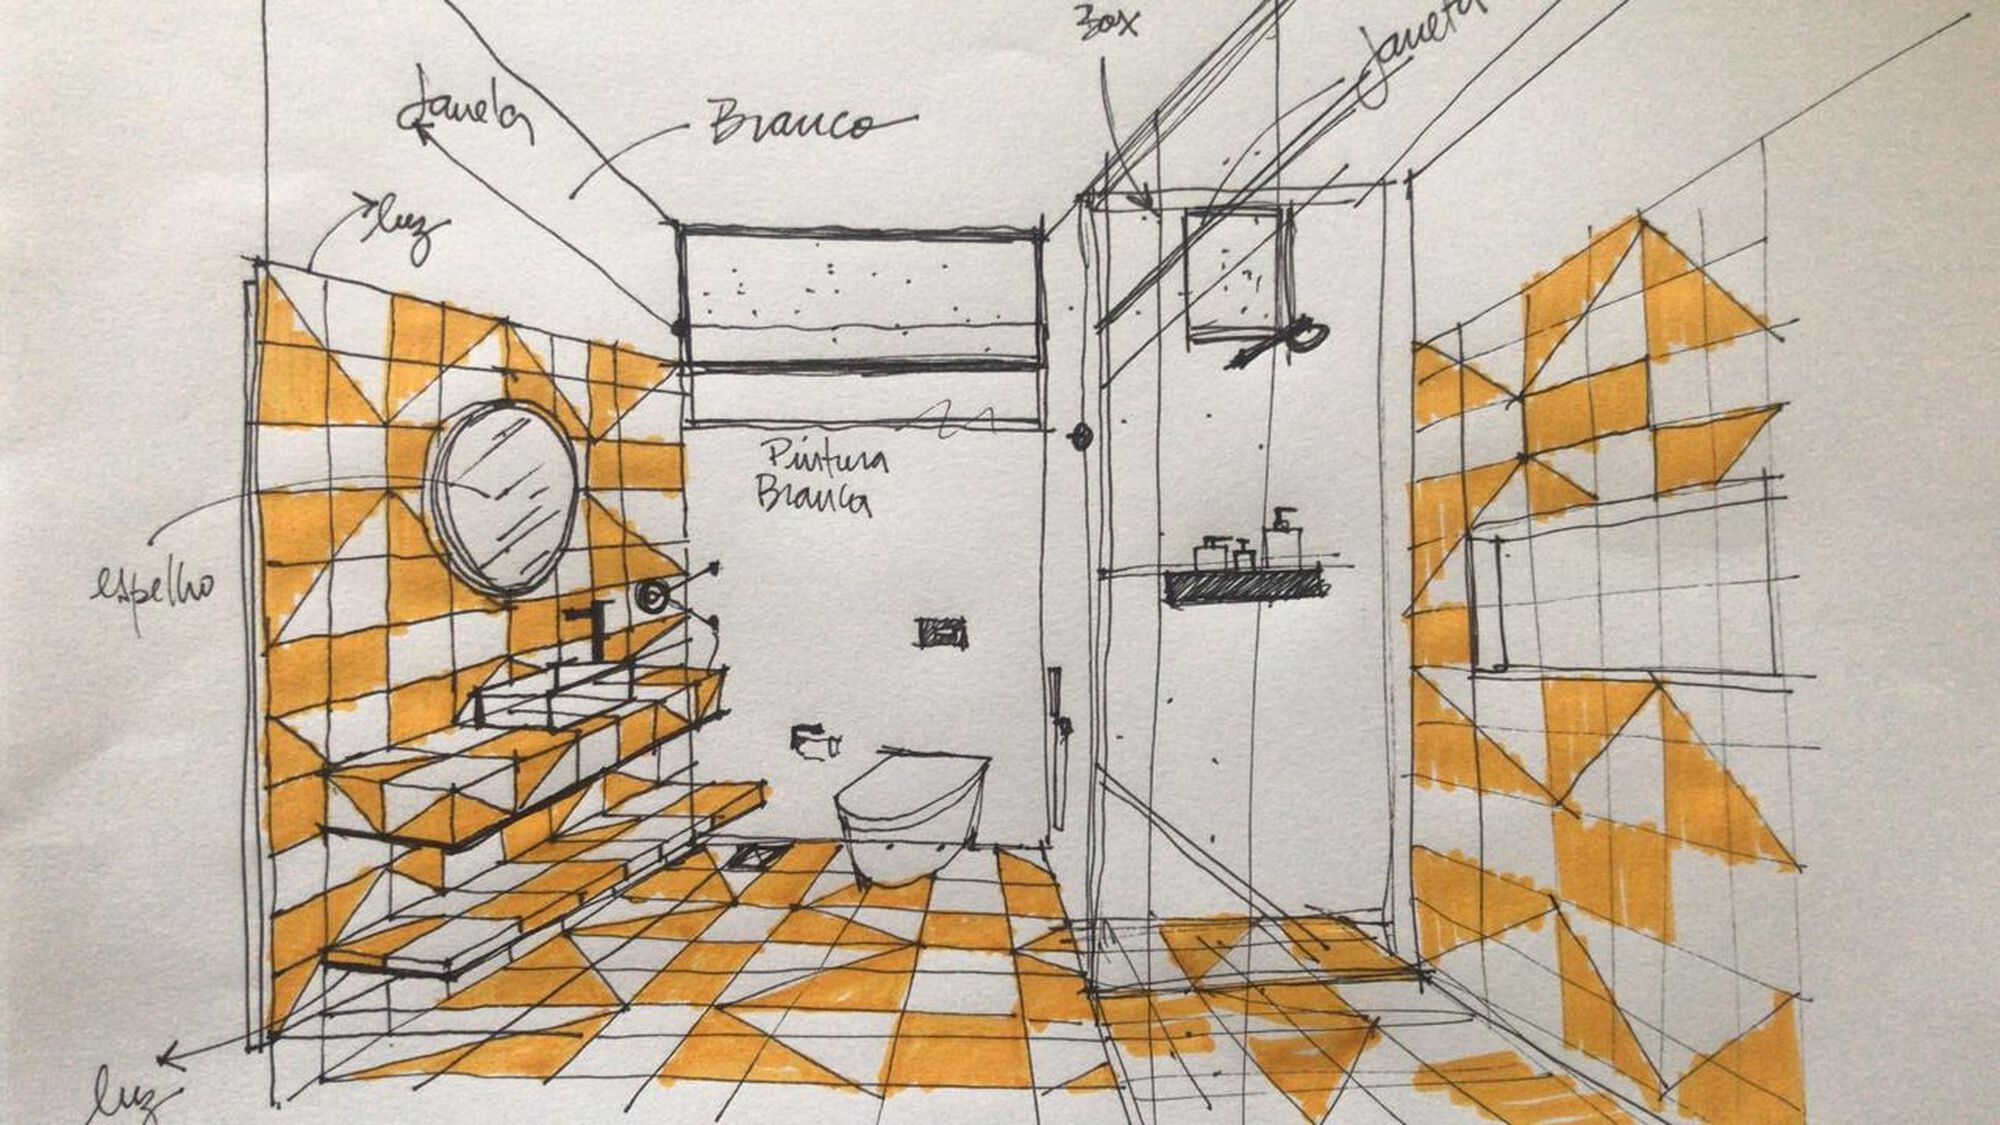 Box
Janela
Janela
Branco
luz
Pintura
Branca
espelho
luz